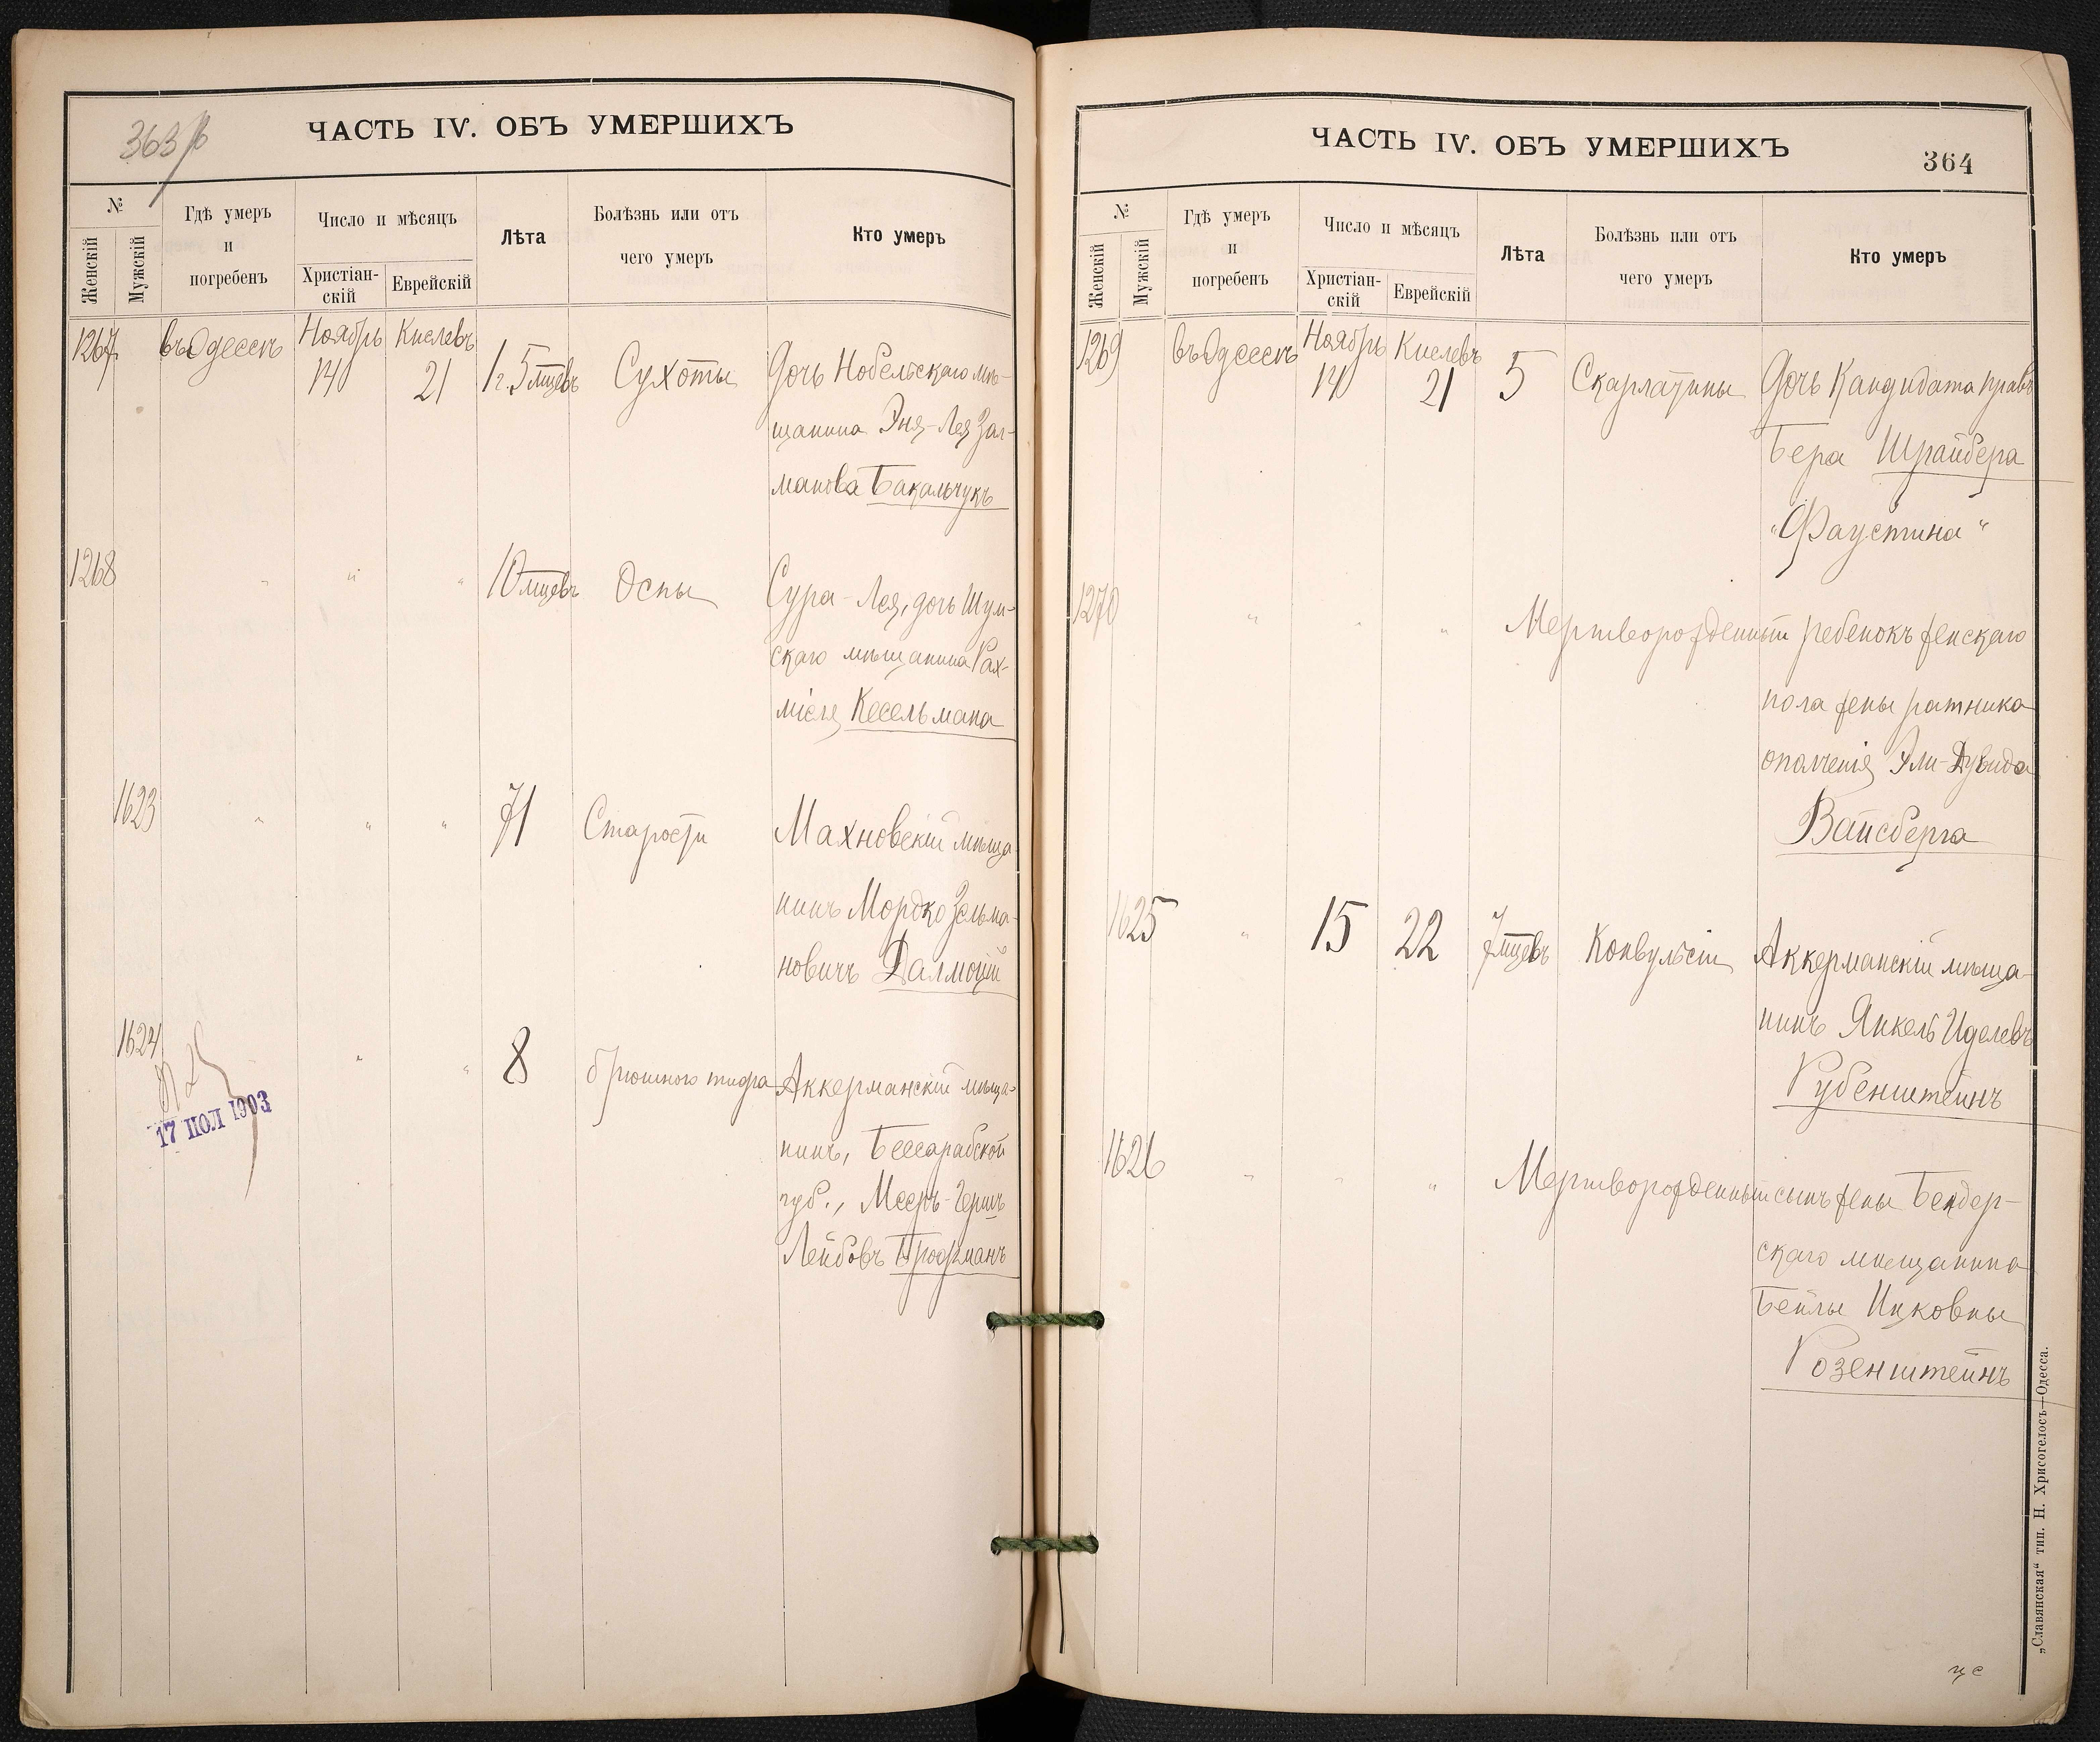 363 б
ЧАСТЬ IV. ОБЪ УМЕРШИХЪ
№
Женскій
Мужскій
Гдѣ умеръ
и
погребенъ
Число и мѣсяцъ
Христіан-
скій
Еврейскій
Лѣта
Болѣзнь или отъ
чего умеръ
Кто умеръ
1267 въ Одессѣ Ноябрь 14 Кислевъ 21 1 г. 5 мцевъ Сухоты Дочь Нобельскаго мѣ-
щанина Эня-Лея Зал-
манова Бакальчукъ
1268 " " " 10 мцевъ Оспы Сура-Лея, дочь Шум-
скаго мѣщанина Рах-
міеля Кесельмана
1623 " " " 71 Старости Махновскій мѣща-
нинъ Мордко Зельма-
новичъ Далмоцкій
1624 " " 8 брюшного тифа Аккерманскій мѣща-
нинъ, Бессарабской
губ., Мееръ-Гершъ
Лейбовъ Бройтманъ
17 ІЮЛ 1903
ЧАСТЬ IV. ОБЪ УМЕРШИХЪ
364
№
Женскій
Мужскій
Гдѣ умеръ
и
погребенъ
Число и мѣсяцъ
Христіан-
скій
Еврейскій
Лѣта
Болѣзнь или отъ
чего умеръ
Кто умеръ
1269 въ Одессѣ Ноябрь 14 Кислевъ 21 5 Скарлатины Дочь Кандидата правъ
Бера Шрайбера
"Фаустина"
1270 " " " Мертворожденный ребенокъ женскаго
пола жены ратника
ополченія Эли-Дувида
Вайсберга
1625 " 15 22 7 мцевъ Конвульсіи Аккерманскій мѣща-
нинъ Янкель Иделевъ
Рубенштейнъ
1626 " " " Мертворожденный сынъ жены Бендер-
скаго мѣщанина
Бейлы Ицковны
Розенштейнъ
„Славянская“ тип. Н. Хрисогелосъ—Одесса.